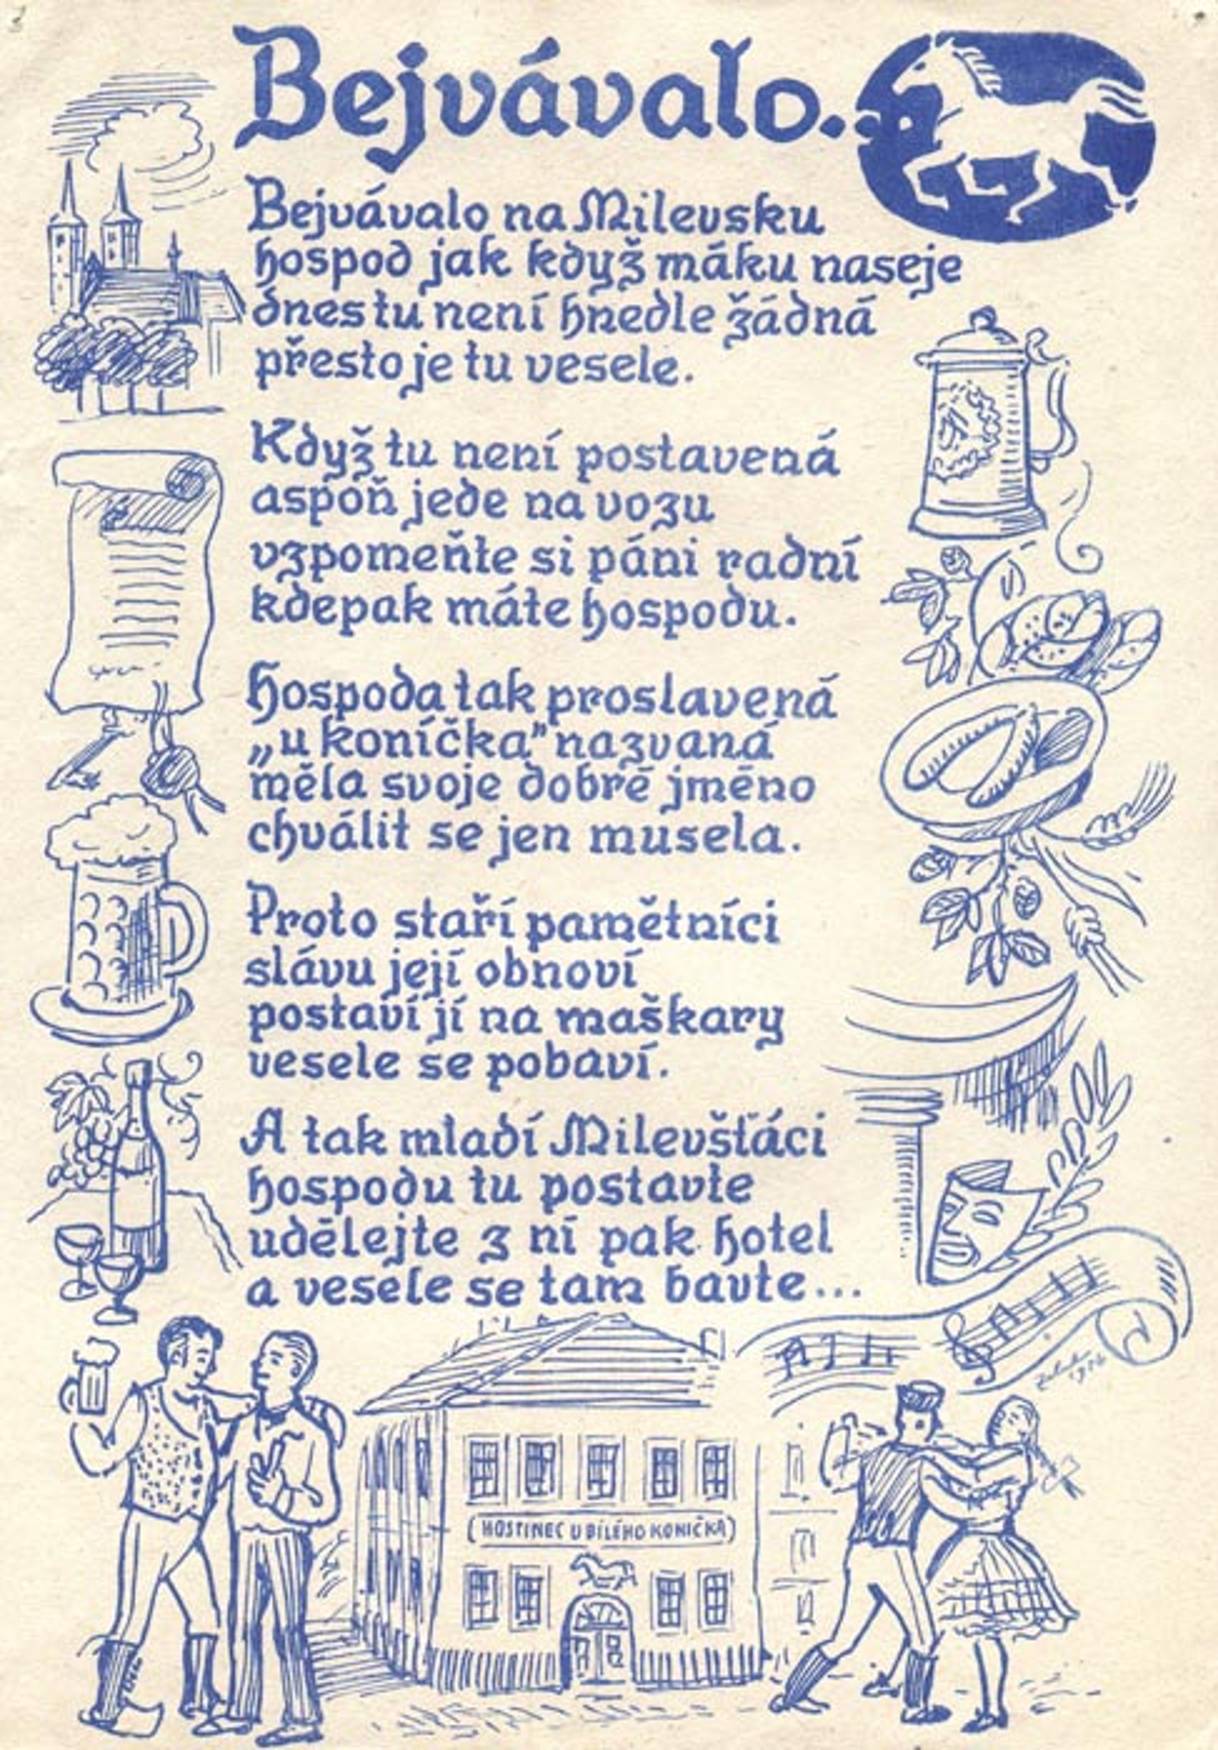 Bejvávalo..
Bejvávalo na Milevsku
hospod jak když máku naseje
dnes tu není hnedle žádná
přesto je tu vesele.
Když tu není postavená
aspoň jede na vozu
vzpomeňte si páni radní
kdepak máte hospodu.
Hospoda tak proslavená
„u koníčka" nazvaná
měla svoje dobré jméno
chválit se jen musela.
Proto staří pamětníci
slávu její obnoví
postaví jí na maškary
vesele se pobaví.
A tak mladí Milevšťáci
hospodu tu postavte
udělejte z ní pak hotel
a vesele se tam bavte...
(HOSTINEC U BÍLÉHO KONIČKA)